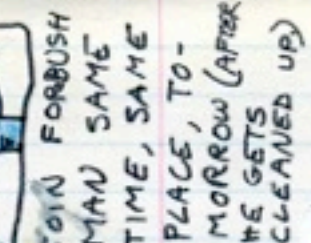 JOIN FORBUSH
MAN SAME
TIME, SAME
PLACE, TO-
MORROW (AFTER
HE GETS
CLEANED UP)